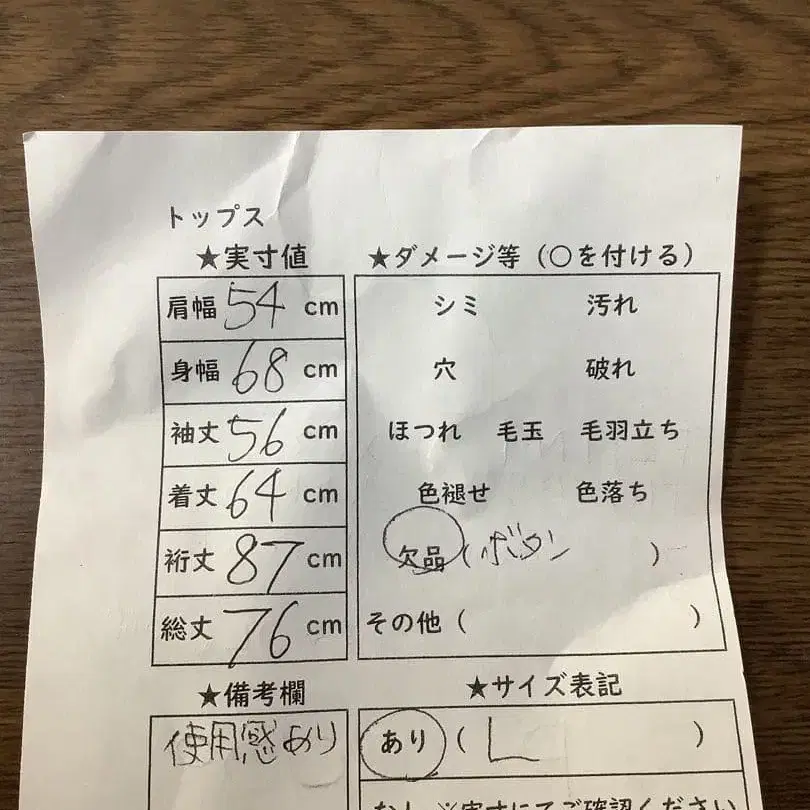 トップス
★実寸値
肩幅 54 cm
身幅 68 cm
袖丈 56 cm
着丈 64 cm
裄丈 87 cm
総丈 76 cm
★ダメージ等（○を付ける）
シミ 汚れ
穴 破れ
ほつれ 毛玉 毛羽立ち
色褪せ 色落ち
欠品（ボタン）
その他（ ）
★備考欄
使用感あり
★サイズ表記
あり（L）
なし ※実寸にてご確認ください